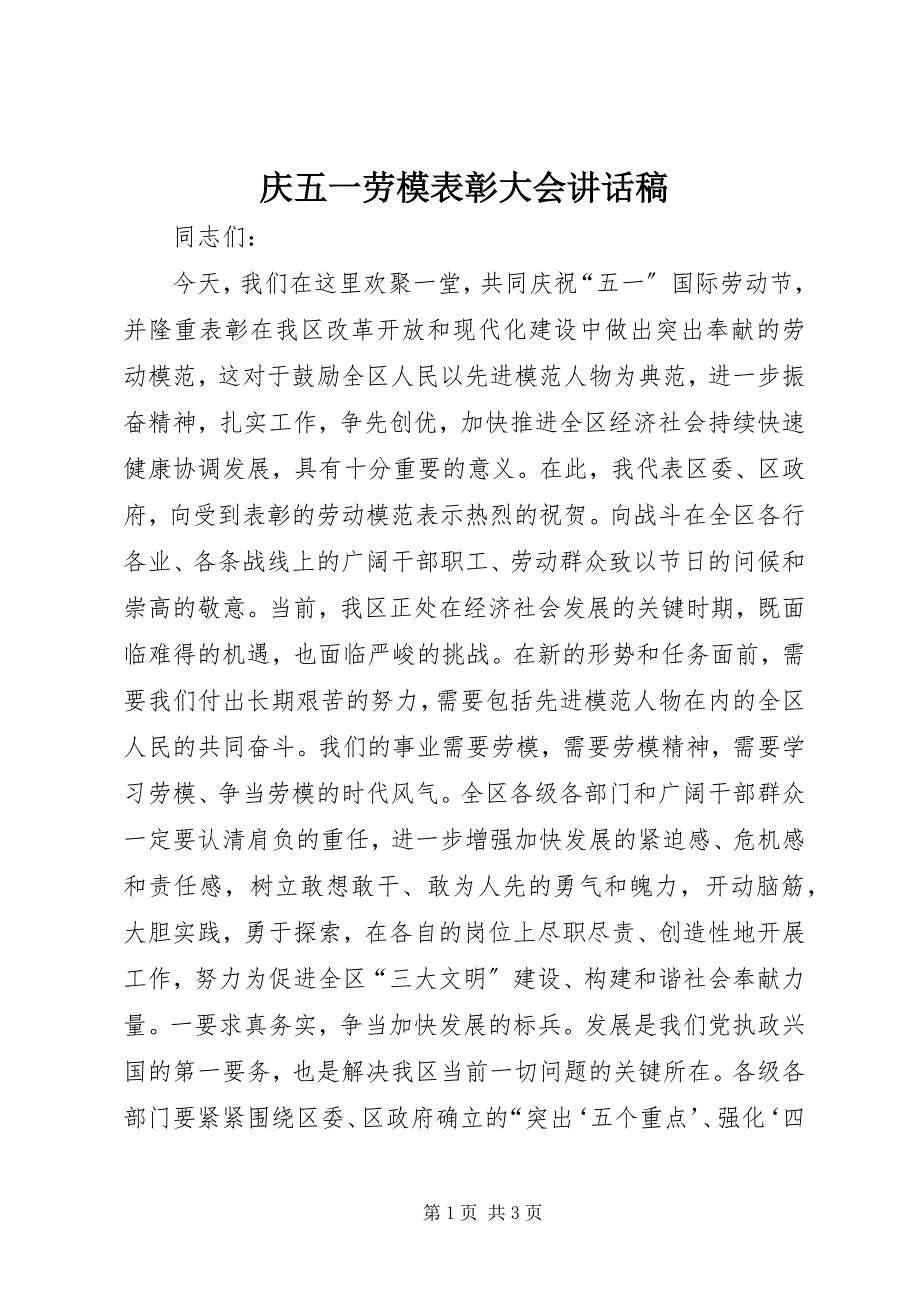 庆五一劳模表彰大会讲话稿
同志们：
今天，我们在这里欢聚一堂，共同庆祝“五一〞国际劳动节，
并隆重表彰在我区改革开放和现代化建设中做出突出奉献的劳
动模范，这对于鼓励全区人民以先进模范人物为典范，进一步振
奋精神，扎实工作，争先创优，加快推进全区经济社会持续快速
健康协调发展，具有十分重要的意义。在此，我代表区委、区政
府，向受到表彰的劳动模范表示热烈的祝贺。向战斗在全区各行
各业、各条战线上的广阔干部职工、劳动群众致以节日的问候和
崇高的敬意。当前，我区正处在经济社会发展的关键时期，既面
临难得的机遇，也面临严峻的挑战。在新的形势和任务面前，需
要我们付出长期艰苦的努力，需要包括先进模范人物在内的全区
人民的共同奋斗。我们的事业需要劳模，需要劳模精神，需要学
习劳模、争当劳模的时代风气。全区各级各部门和广阔干部群众
一定要认清肩负的重任，进一步增强加快发展的紧迫感、危机感
和责任感，树立敢想敢干、敢为人先的勇气和魄力，开动脑筋，
大胆实践，勇于探索，在各自的岗位上尽职尽责、创造性地开展
工作，努力为促进全区“三大文明〞建设、构建和谐社会奉献力
量。一要求真务实，争当加快发展的标兵。发展是我们党执政兴
国的第一要务，也是解决我区当前一切问题的关键所在。各级各
部门要紧紧围绕区委、区政府确立的“突出‘五个重点’、强化‘四
第 1 页 共 3 页